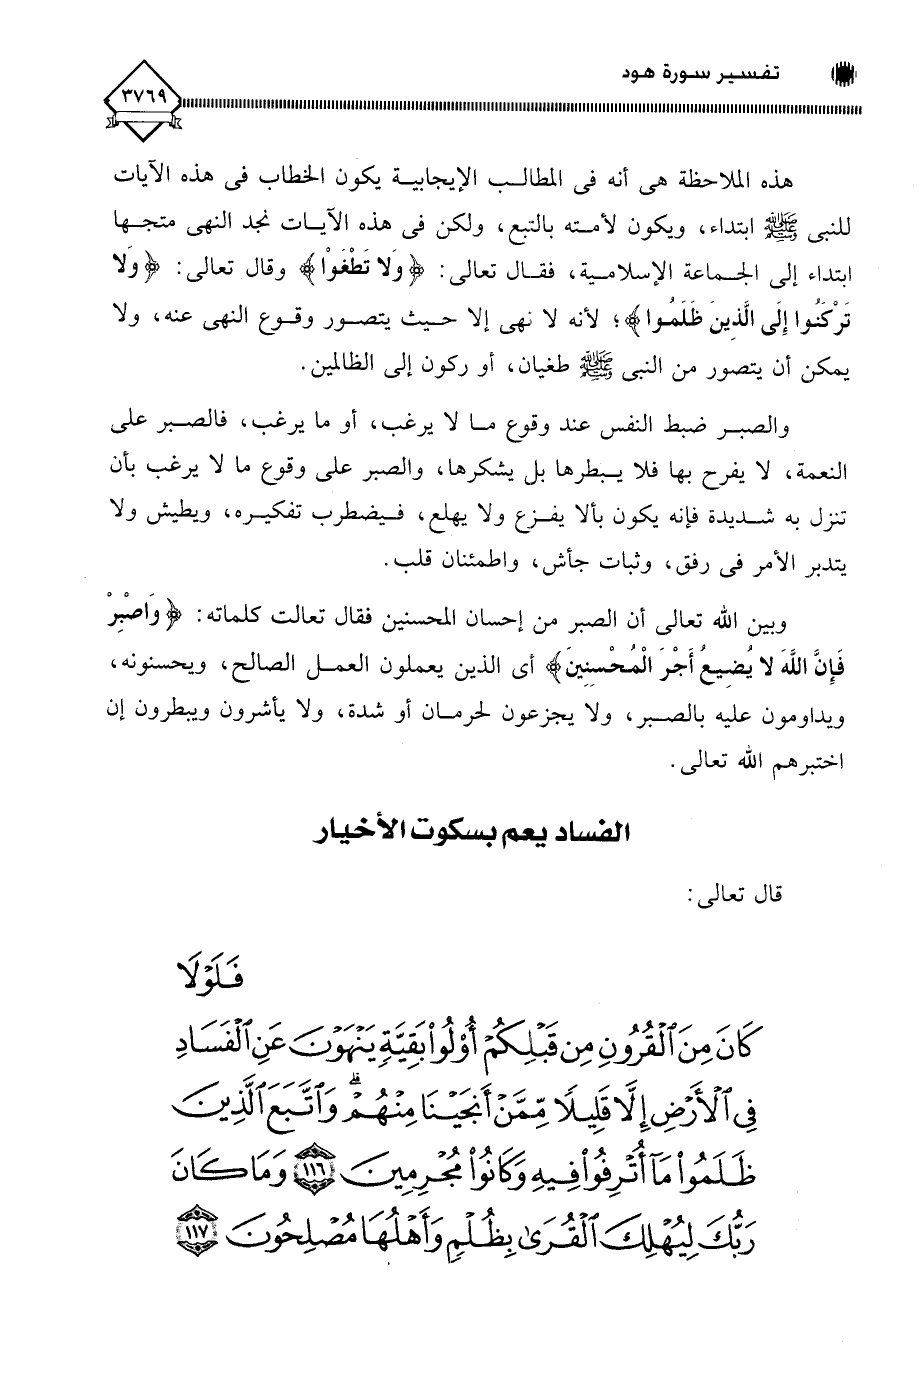 تفسير سورة هود
٣٧٦٩
هذه الملاحظة هى أنه فى المطالب الإيجابية يكون الخطاب فى هذه الآيات
للنبى ﷺ ابتداء، ويكون لأمته بالتبع، ولكن فى هذه الآيات نجد النهى متجها
ابتداء إلى الجماعة الإسلامية، فقال تعالى: ﴿وَلا تَطْغَوْا﴾ وقال تعالى: ﴿وَلا
تَرْكَنُوا إِلَى الَّذِينَ ظَلَمُوا﴾؛ لأنه لا نهى إلا حيث يتصور وقوع النهى عنه، ولا
يمكن أن يتصور من النبى ﷺ طغيان، أو ركون إلى الظالمين.
والصبر ضبط النفس عند وقوع ما لا يرغب، أو ما يرغب، فالصبر على
النعمة، لا يفرح بها فلا يبطرها بل يشكرها، والصبر على وقوع ما لا يرغب بأن
تنزل به شديدة فإنه يكون بألا يفزع ولا يهلع، فيضطرب تفكيره، ويطيش ولا
يتدبر الأمر فى رفق، وثبات جأش، واطمئنان قلب.
وبين الله تعالى أن الصبر من إحسان المحسنين فقال تعالت كلماته: ﴿وَاصْبِرْ
فَإِنَّ اللَّهَ لا يُضِيعُ أَجْرَ الْمُحْسِنِينَ﴾ أى الذين يعملون العمل الصالح، ويحسنونه،
ويداومون عليه بالصبر، ولا يجزعون لحرمان أو شدة، ولا يأشرون ويبطرون إن
اختبرهم الله تعالى.
الفساد يعم بسكوت الأخيار
قال تعالى:
فَلَوْلَا
كَانَ مِنَ ٱلْقُرُونِ مِن قَبْلِكُمْ أُوْلُواْ بَقِيَّةٍ يَنْهَوْنَ عَنِ ٱلْفَسَادِ
فِي ٱلْأَرْضِ إِلَّا قَلِيلًا مِّمَّنْ أَنجَيْنَا مِنْهُمْ ۗ وَٱتَّبَعَ ٱلَّذِينَ
ظَلَمُواْ مَآ أُتْرِفُواْ فِيهِ وَكَانُواْ مُجْرِمِينَ ١١٦ وَمَا كَانَ
رَبُّكَ لِيُهْلِكَ ٱلْقُرَىٰ بِظُلْمٍ وَأَهْلُهَا مُصْلِحُونَ ١١٧